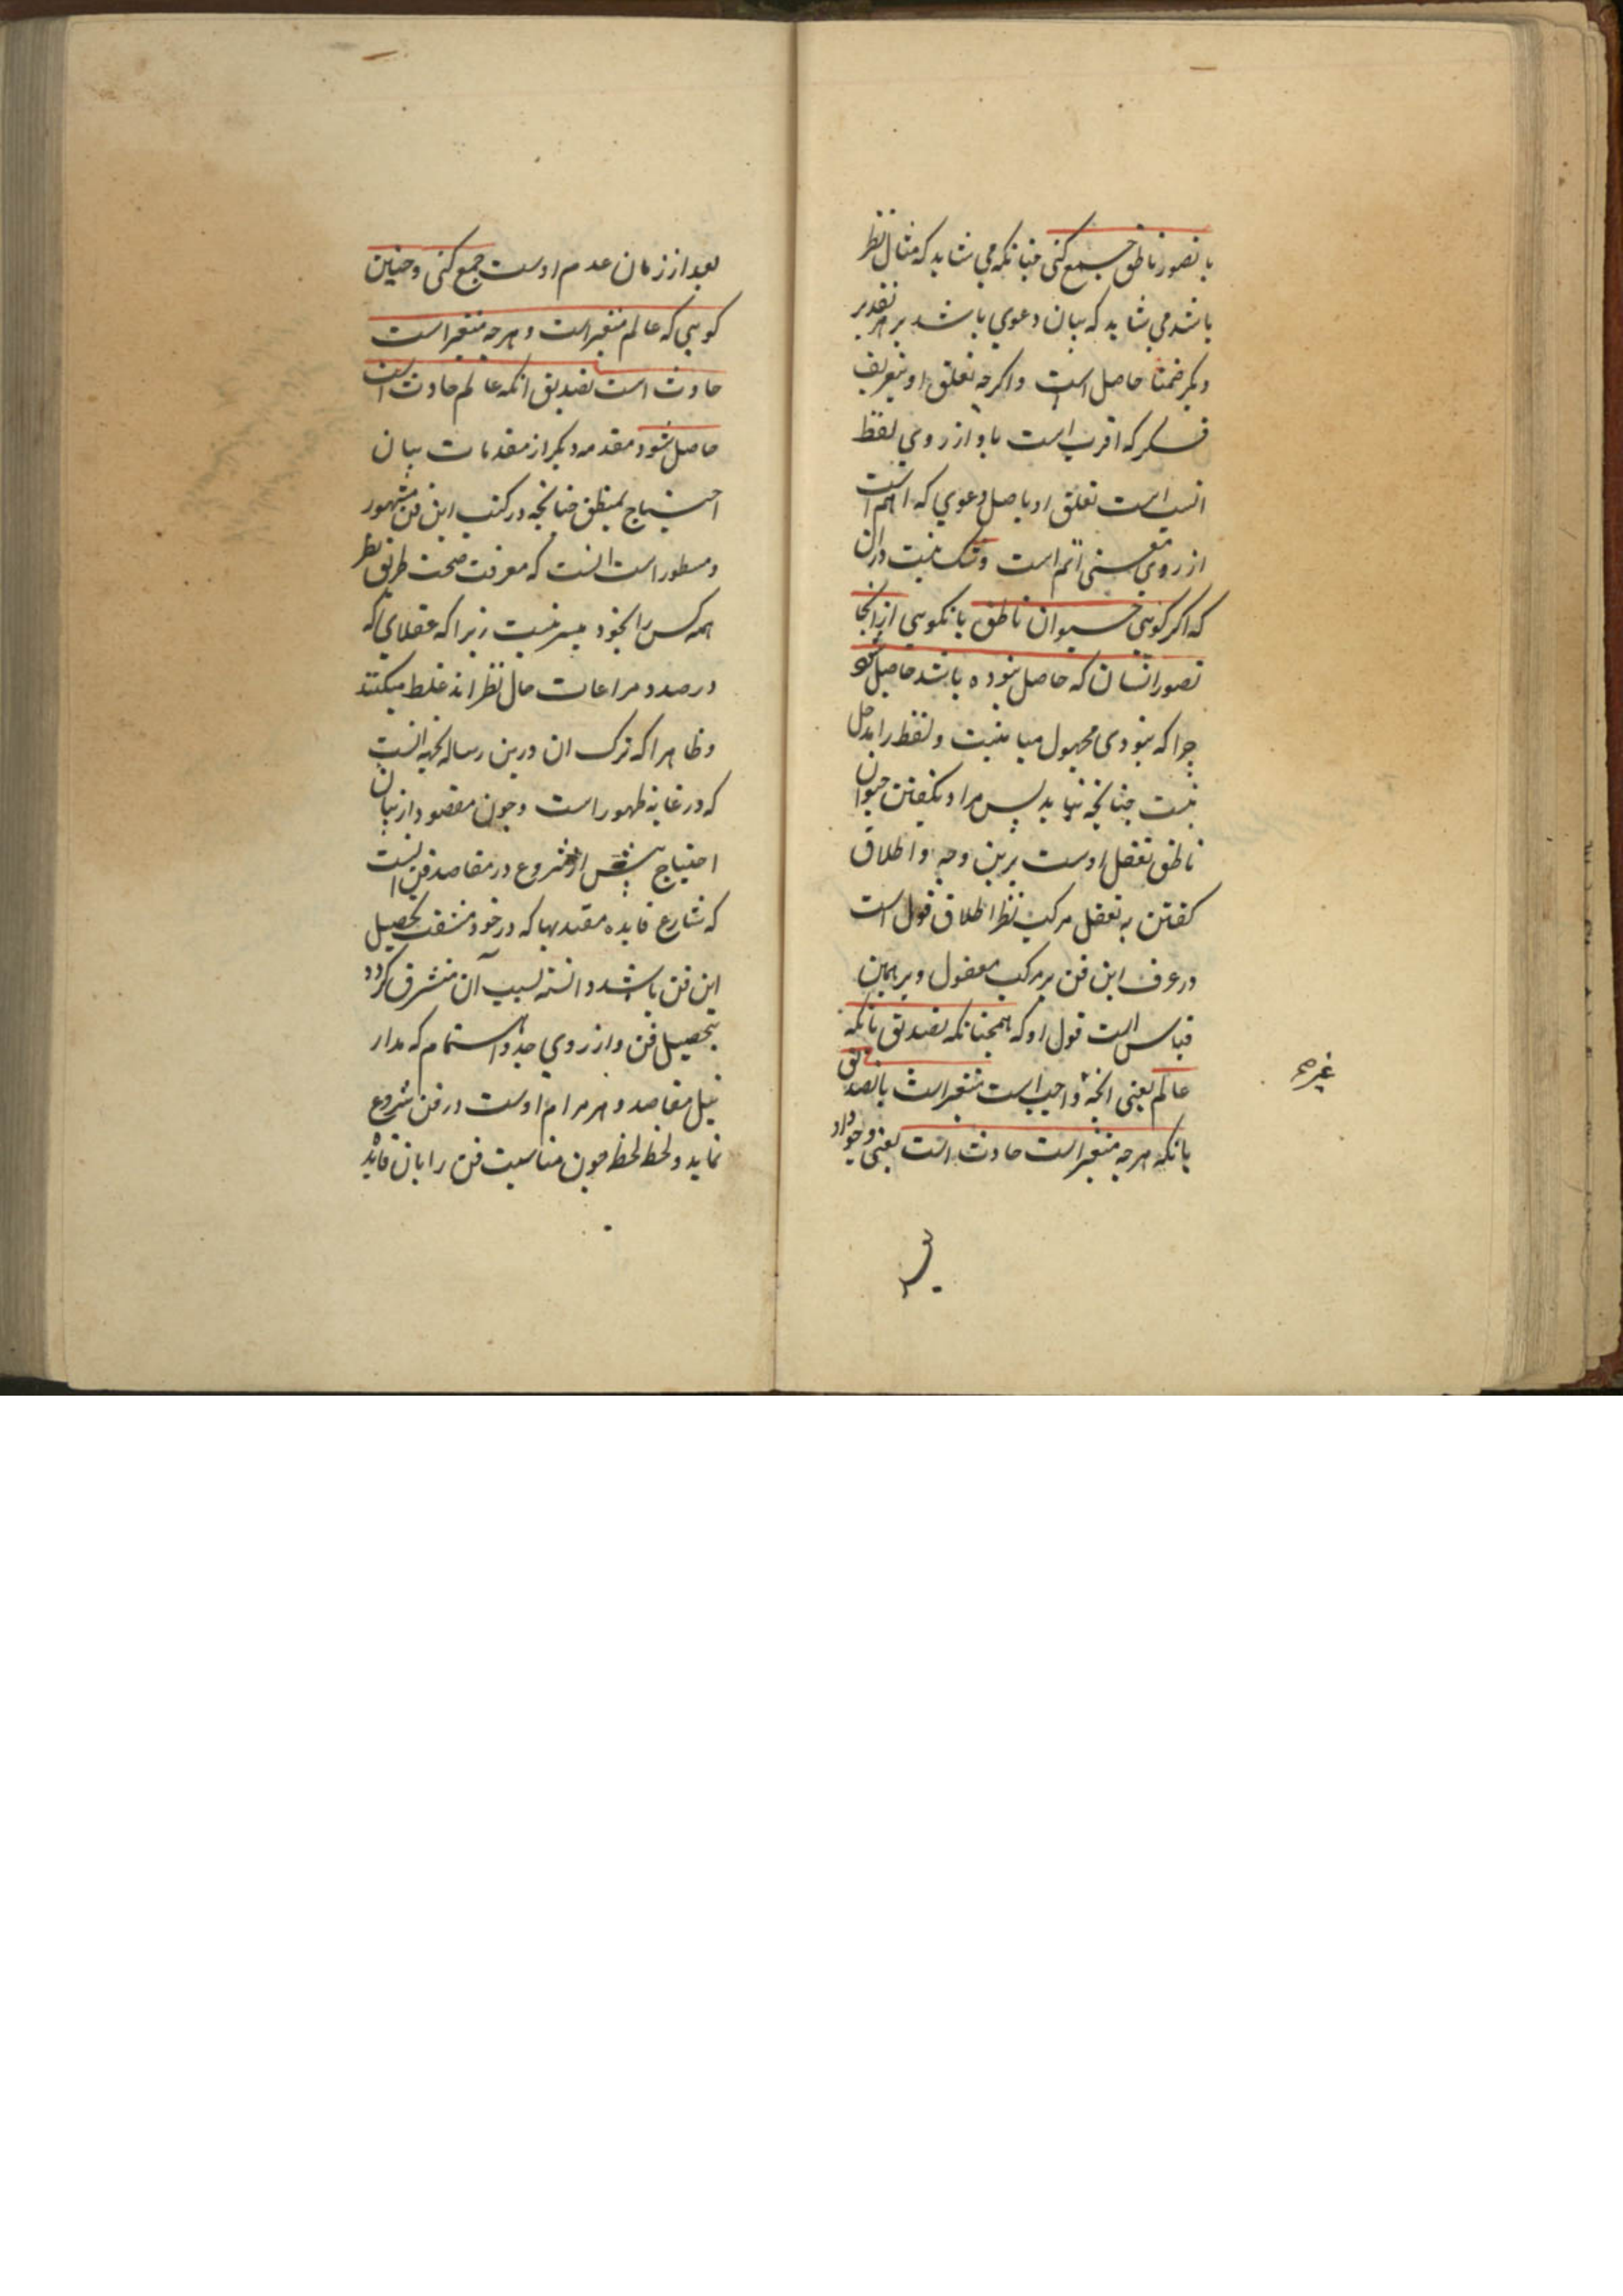 با تصور ناطق جمع کنی چنانکه می شاید که مثال نظر
باشد می شاید که بیان دعوی باشد بر هر تقدیر
دیگر ضمنا حاصل است و اگرچه تعلق او بتعریف
فکر که اقرب است باو از روی لفظ
انسب است تعلق او باصل دعوی که اهم است
از روی معنی اتم است وشک نیست در ان
که اگر گویی حیوان ناطق یا نگویی از انجا
تصور انسان که حاصل نبوده باشد حاصل شو
چرا که نبودی مجهول مباینیت و لفظ را مدخل
نیست چنانچه بیاید پس مراد بگفتن حیوان
ناطق تعقل اوست برین وجه و اطلاق
گفتن به تعقل مرکب نظر اطلاق قول است
در عرف این فن بر مرکب معقول و بر همین
قیاس است قول او که همچنانکه تصدیق بانکه
عالم یعنی انچه واجب است متغیر است با تصدیق
غیره
بانکه هرچه متغیر است حادث است یعنی وجود او
بعد از زمان عدم اوست جمع کنی و چنین
گویی که عالم متغیر است و هرچه متغیر است
حادث است تصدیق انکه عالم حادث است
حاصل شود مقدمه دیگر از مقدمات بیان
احتیاج بمنطق چنانچه در کتب این فن مشهور
و مسطور است انست که معرفت صحت طریق نظر
همه کس را بخود میسر نیست زیرا که عقلای که
در صدد مراعات حال نظر اند غلط میکنند
و ظاهرا که ترک ان درین رساله بجهه انست
که در غایه ظهور است و چون مقصود از بیان
احتیاج پیش از شروع در مقاصد فن انست
که شارع فایده معتد بها که در خود مشقت تحصیل
این فن باشد دانسته بسبب آن متشرق گردد
بتحصیل فن و از روی جد و اهتمام که مدار
نیل مقاصد و هر مرام اوست در فن شروع
نماید و لحظه لحظه چون مناسبت فن را بان فایده